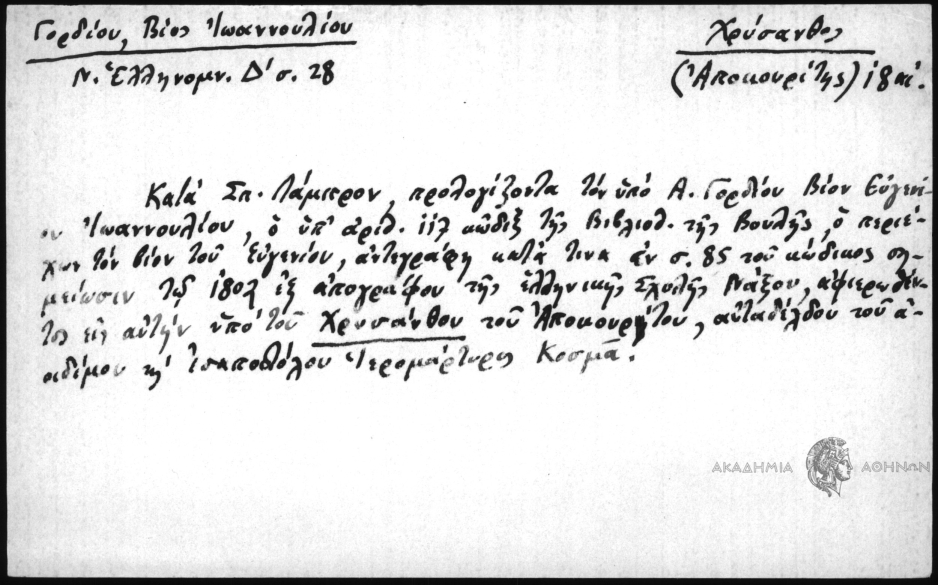 Γορδίου, Βίος Ἰωαννουλίου
Ν. Ἑλληνομν. Δ' σ. 28
Χρύσανθος
(Ἀποκουρίτης) 18
Κατά Σπ. Λάμπρον, προλογίζοντα τόν ὑπό Α. Γορδίου Βίον Εὐγενί-
ου Ἰωαννουλίου, ὁ ὑπ' ἀριθ. κῶδιξ τῆς Βιβλιοθ. τῆς Βουλῆς, ὁ περιέ-
χων τόν βίον τοῦ Εὐγενίου, ἀντεγράφη κατά τινα ἐν σ. 85 τοῦ κώδικος ση-
μείωσιν τῷ ἐξ ἀπογράφου τῆς ἑλληνικῆς Σχολῆς Νάξου, ἀφιερωθέν-
τος εἰς αὐτήν ὑπό τοῦ Χρυσάνθου τοῦ Ἀποκουρίτου, αὐταδέλφου τοῦ ἀ-
οιδίμου κ' ἰσαποστόλου Ἱερομάρτυρος Κοσμᾶ.
ΑΚΑΔΗΜΙΑ ΑΘΗΝΩΝ